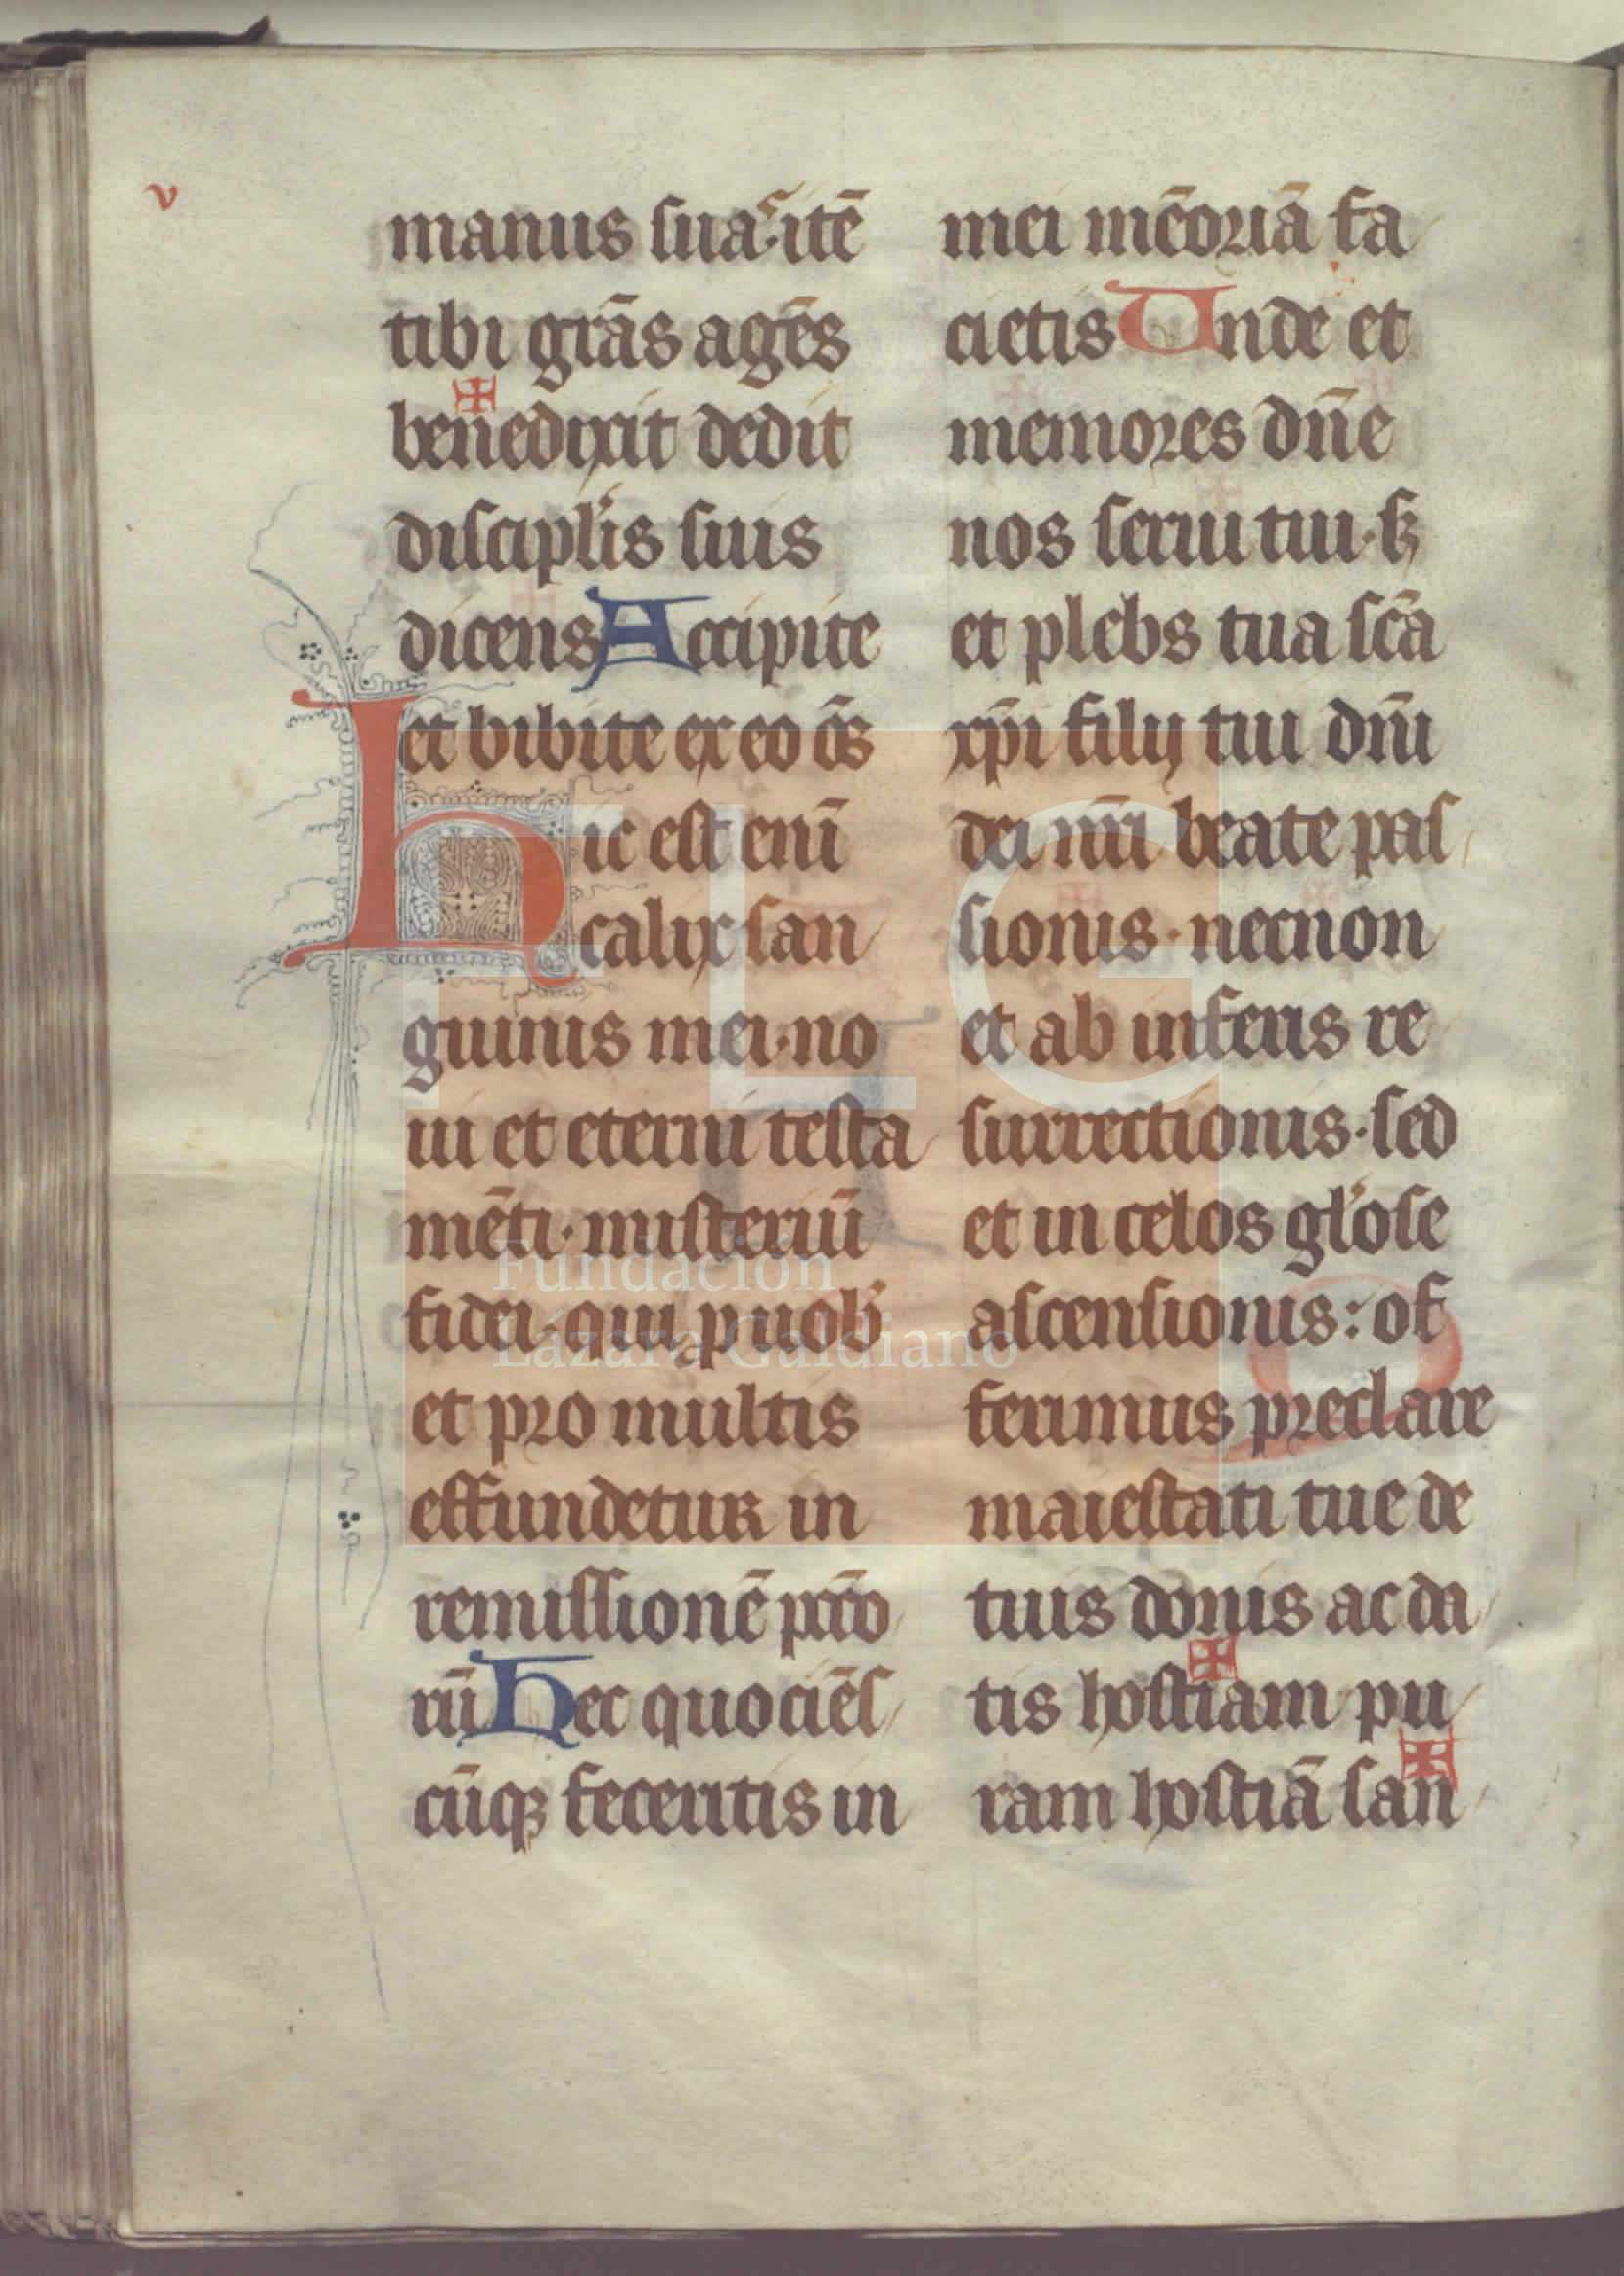 v
manus sua^s·itē
tibi grās agēs
✠
benedixit dedit
discipl'is suis
dicens Accipite
et bibite ex eo ōs
Hic est enī
calix san
guinis mei·no
ui et eterni testa
mēti·misteriū
fidei·qui p uob'
et pro multis
effundetur in
remissionē pctō
rū Hec quociēs
cūqꝫ feceritis in
mei mēoriā fa
cietis Unde et
memores dn̄e
nos serui tui·sꝫ
et plebs tua scā
xp̄i filij tui dn̄i
dei nr̄i beate pas
sionis·necnon
et ab inferis re
surrectionis·sed
et in celos gl'ose
ascensionis: of
ferimus preclare
maiestati tue de
tuis donis ac da
✠
tis hostiam pu
✠
ram hostiā san
FLG
Fundación
Lázaro Galdiano